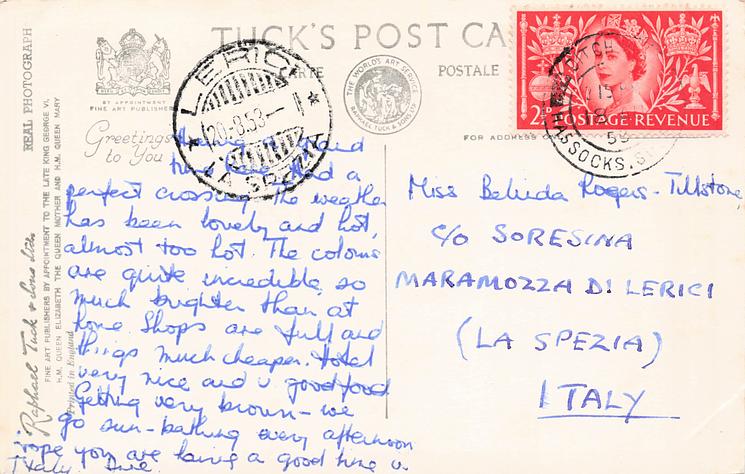 TUCK'S POST CA
CARTE
POSTALE
REAL PHOTOGRAPH
BY APPOINTMENT
FINE ART PUBLISHERS
THE WORLD'S ART SERVICE
RAPHAEL TUCK & SONS LTD
Greetings
to You
FOR ADDRESS
LERICI
20-8.53-
LA SPEZIA
2½ POSTAGE REVENUE
DITCH
15
53
HASSOCKS.
Raphael Tuck & Sons Ltd.
FINE ART PUBLISHERS BY APPOINTMENT TO THE LATE KING GEORGE VI,
H.M. QUEEN ELIZABETH THE QUEEN MOTHER AND H.M. QUEEN MARY
Printed in England
Having a grand
time here. Had a
perfect crossing. The weather
has been lovely and hot,
almost too hot. The colours
are quite incredible, so
much brighter than at
home. Shops are full and
things much cheaper. Hotel
very nice and v. good food.
Getting very brown - we
go sun-bathing every afternoon
hope you are having a good time in
Italy.
Miss Belinda Rogers-Tillstone,
c/o SORESINA
MARAMOZZA DI LERICI
(LA SPEZIA)
ITALY